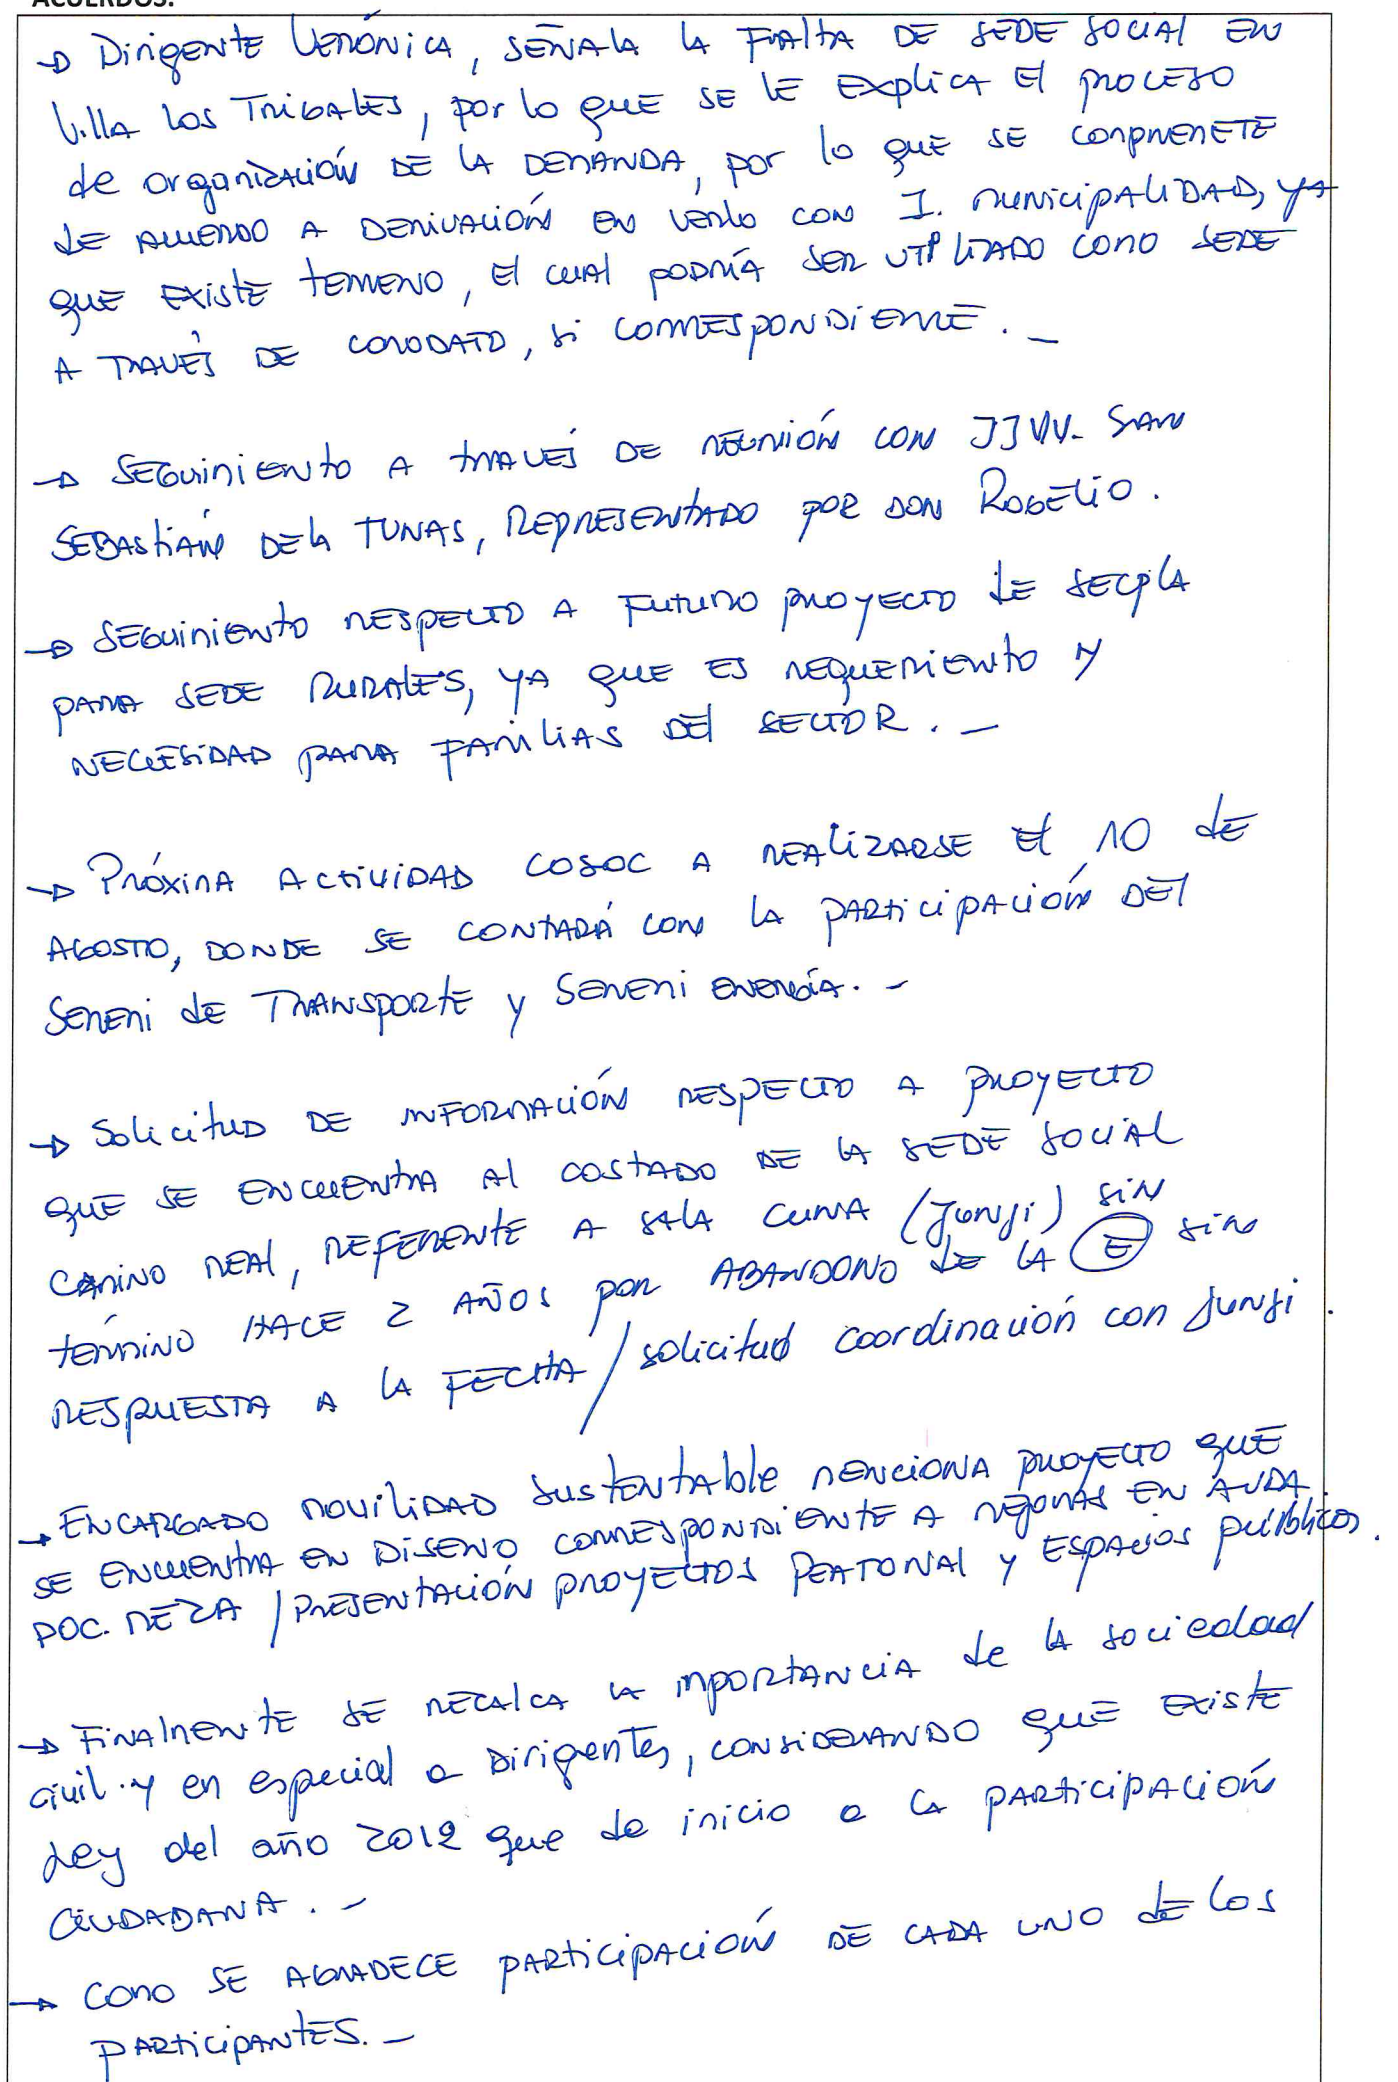 ACUERDOS:
→ Dirigente Verónica, señala la falta de sede social en
Villa Los Tribales, por lo que se le explica el proceso
de organización de la demanda, por lo que se compromete
de acuerdo a derivación en verlo con I. Municipalidad, ya
que existe terreno, el cual podría ser utilizado como sede
a través de comodato, si correspondiente.-
→ Seguimiento a través de reunión con JJVV. San
Sebastián de la Tunas, representado por don Rogelio.
→ Seguimiento respecto a futuro proyecto de Secpla
para sede rurales, ya que es requerimiento y
necesidad para familias del sector.-
→ Próxima actividad COSOC a realizarse el 10 de
Agosto, donde se contará con la participación del
Seremi de Transporte y Seremi Energía.-
→ Solicitud de información respecto a proyecto
que se encuentra al costado de la sede social
Camino Real, referente a sala cuna (Junji) sin
término hace 2 años por abandono de la E sin
respuesta a la fecha / solicitud coordinación con Junji.
→ Encargado movilidad sustentable menciona proyecto que
se encuentra en diseño correspondiente a mejoras en Avda.
Doc. Meza / Presentación proyectos Peatonal y Espacios públicos.
→ Finalmente se recalca la importancia de la sociedad
civil y en especial a dirigentes, considerando que existe
Ley del año 2012 que da inicio a la participación
ciudadana.-
→ Como se agradece participación de cada uno de los
participantes.-